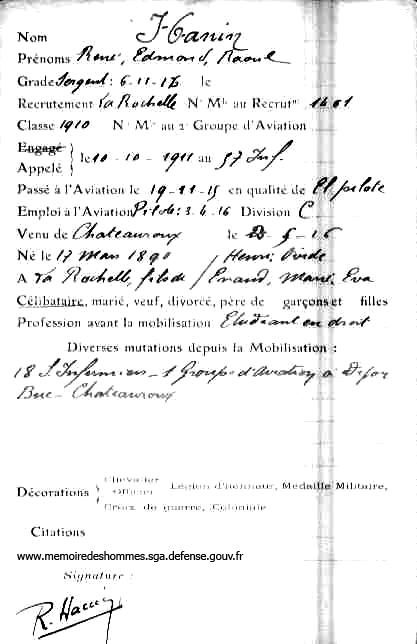 Nom Hanin
Prénoms René, Edmond, Raoul
Grade Sergent : 6-11-16 le
Recrutement La Rochelle Nº Mle au Recrutnt 1461
Classe 1910 Nº Mle au 2e Groupe d'Aviation
Engagé
Appelé } le 10-10-1911 au 57 Inf.
Passé à l'Aviation le 19-11-15 en qualité de El. pilote
Emploi à l'Aviation Pilote : 3.4.16 Division C
Venu de Chateauroux le 5-16
Né le 17 Mars 1890 / Henri, Ovide
A La Rochelle, fils de / Enaud, Marie, Eva
Célibataire, marié, veuf, divorcé, père de garçons et filles
Profession avant la mobilisation Etudiant en droit
Diverses mutations depuis la Mobilisation :
18 S. Infirmiers - 1 Groupe d'Aviation à Dijon
Buc - Chateauroux
Décorations { Chevalier
Officier Légion d'honneur, Médaille Militaire,
Croix de guerre, Coloniale
Citations
www.memoiredeshommes.sga.defense.gouv.fr
Signature :
R. Hanin